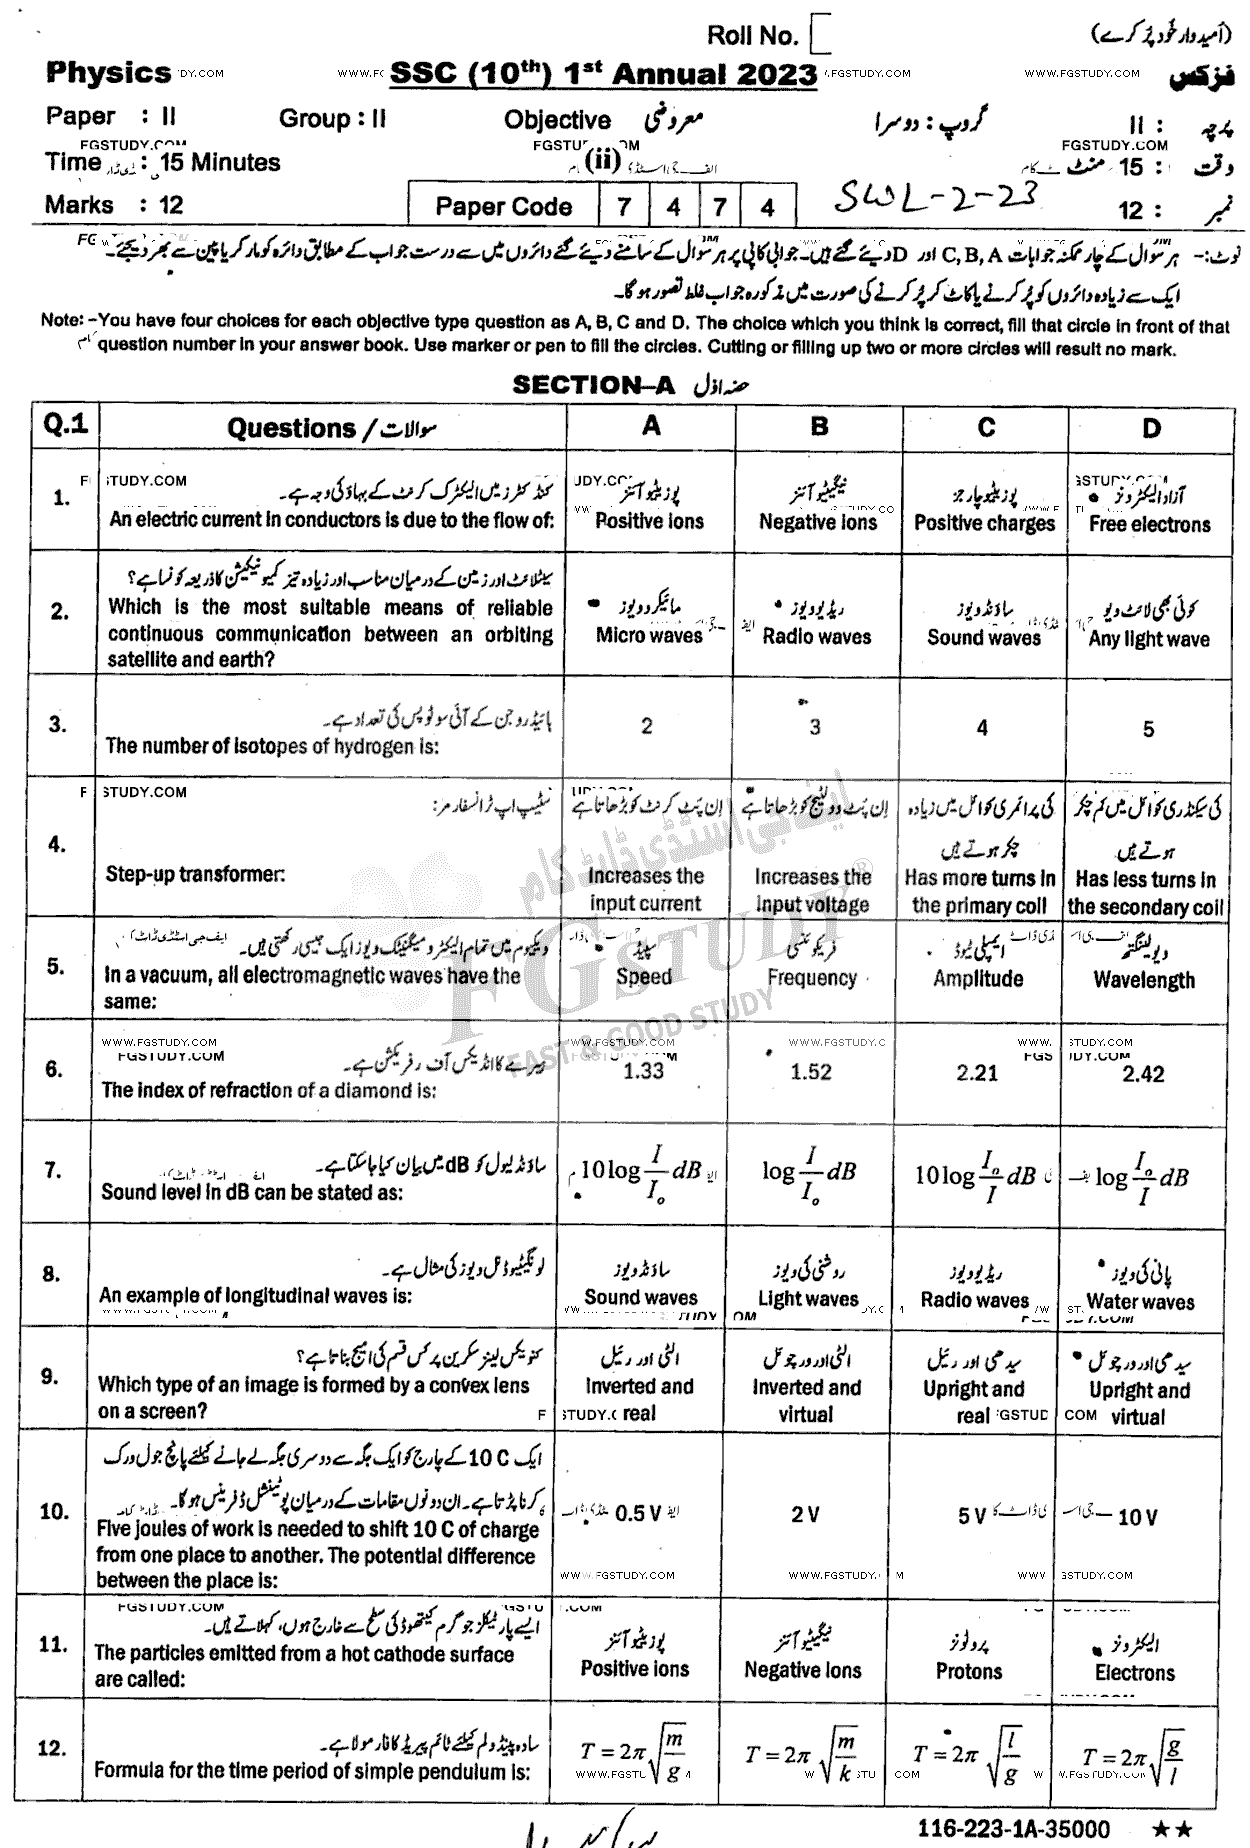 Roll No. (امیدوار خود پُر کرے)
Physics SSC (10th) 1st Annual 2023 فزکس
WWW.FGSTUDY.COM
Paper : II Group : II Objective معروضی گروپ : دوسرا II : پرچہ
FGSTUDY.COM FGSTUDY.COM
Time : 15 Minutes (ii) وقت : 15 منٹ
Marks : 12 Paper Code 7 4 7 4 SWL-2-23 12 : نمبر
نوٹ:- ہر سوال کے چار ممکنہ جوابات C, B, A اور D دیئے گئے ہیں۔ جوابی کاپی پر ہر سوال کے سامنے دیئے گئے دائروں میں سے درست جواب کے مطابق دائرہ کو مارکر یا پین سے بھر دیجئے۔
ایک سے زیادہ دائروں کو پُر کرنے یا کاٹ کر پُر کرنے کی صورت میں مذکورہ جواب غلط تصور ہو گا۔
Note: -You have four choices for each objective type question as A, B, C and D. The choice which you think is correct, fill that circle in front of that
question number in your answer book. Use marker or pen to fill the circles. Cutting or filling up two or more circles will result no mark.
SECTION-A حصہ اوّل
Q.1 Questions / سوالات A B C D
1. کنڈکٹرز میں الیکٹرک کرنٹ کے بہاؤ کی وجہ ہے۔ پوزیٹیو آئنز نیگیٹیو آئنز پوزیٹیو چارجز آزاد الیکٹرونز
An electric current in conductors is due to the flow of: Positive ions Negative ions Positive charges Free electrons
2. سیٹلائٹ اور زمین کے درمیان مناسب اور زیادہ تیز کمیونیکیشن کا ذریعہ کونسا ہے؟ مائیکرو ویوز ریڈیو ویوز ساؤنڈ ویوز کوئی بھی لائٹ ویو
Which is the most suitable means of reliable
continuous communication between an orbiting Micro waves Radio waves Sound waves Any light wave
satellite and earth?
3. ہائیڈروجن کے آئی سوٹوپس کی تعداد ہے۔ 2 3 4 5
The number of isotopes of hydrogen is:
4. سٹیپ اپ ٹرانسفارمر: اِن پٹ کرنٹ کو بڑھاتا ہے اِن پٹ وولٹیج کو بڑھاتا ہے کی پرائمری کوائل میں زیادہ کی سیکنڈری کوائل میں کم چکر
چکر ہوتے ہیں ہوتے ہیں
Step-up transformer: Increases the Increases the Has more turns in Has less turns in
input current input voltage the primary coil the secondary coil
5. ویکیوم میں تمام الیکٹرومیگنیٹک ویوز ایک جیسی رکھتی ہیں۔ سپیڈ فریکوئنسی ایمپلی ٹیوڈ ویولینگتھ
In a vacuum, all electromagnetic waves have the Speed Frequency Amplitude Wavelength
same:
ایف جی اسٹڈی ڈاٹ کام
FGSTUDY ®
FAST & GOOD STUDY
WWW.FGSTUDY.COM
6. ہیرے کا انڈیکس آف رفریکشن ہے۔ 1.33 1.52 2.21 2.42
The index of refraction of a diamond is:
7. ساؤنڈ لیول کو dB میں بیان کیا جا سکتا ہے۔ 10 log I/I₀ dB log I/I₀ dB 10 log I₀/I dB log I₀/I dB
Sound level in dB can be stated as:
8. لونگیٹیوڈنل ویوز کی مثال ہے۔ ساؤنڈ ویوز روشنی کی ویوز ریڈیو ویوز پانی کی ویوز
An example of longitudinal waves is: Sound waves Light waves Radio waves Water waves
9. کنویکس لینز سکرین پر کس قسم کی امیج بناتا ہے؟ الٹی اور رئیل الٹی اور ورچوئل سیدھی اور رئیل سیدھی اور ورچوئل
Which type of an image is formed by a convex lens Inverted and Inverted and Upright and Upright and
on a screen? real virtual real virtual
10. ایک 10 C کے چارج کو ایک جگہ سے دوسری جگہ لے جانے کیلئے پانچ جول ورک
کرنا پڑتا ہے۔ ان دونوں مقامات کے درمیان پوٹینشل ڈفرینس ہوگا۔ 0.5 V 2 V 5 V 10 V
Five joules of work is needed to shift 10 C of charge
from one place to another. The potential difference
between the place is:
WWW.FGSTUDY.COM
11. ایسے پارٹیکلز جو گرم کیتھوڈ کی سطح سے خارج ہوں، کہلاتے ہیں۔ پوزیٹیو آئنز نیگیٹیو آئنز پروٹونز الیکٹرونز
The particles emitted from a hot cathode surface Positive ions Negative ions Protons Electrons
are called:
12. سادہ پینڈولم کیلئے ٹائم پیریڈ کا فارمولا ہے۔ T = 2π √(m/g) T = 2π √(m/k) T = 2π √(l/g) T = 2π √(g/l)
Formula for the time period of simple pendulum is:
116-223-1A-35000 ★★